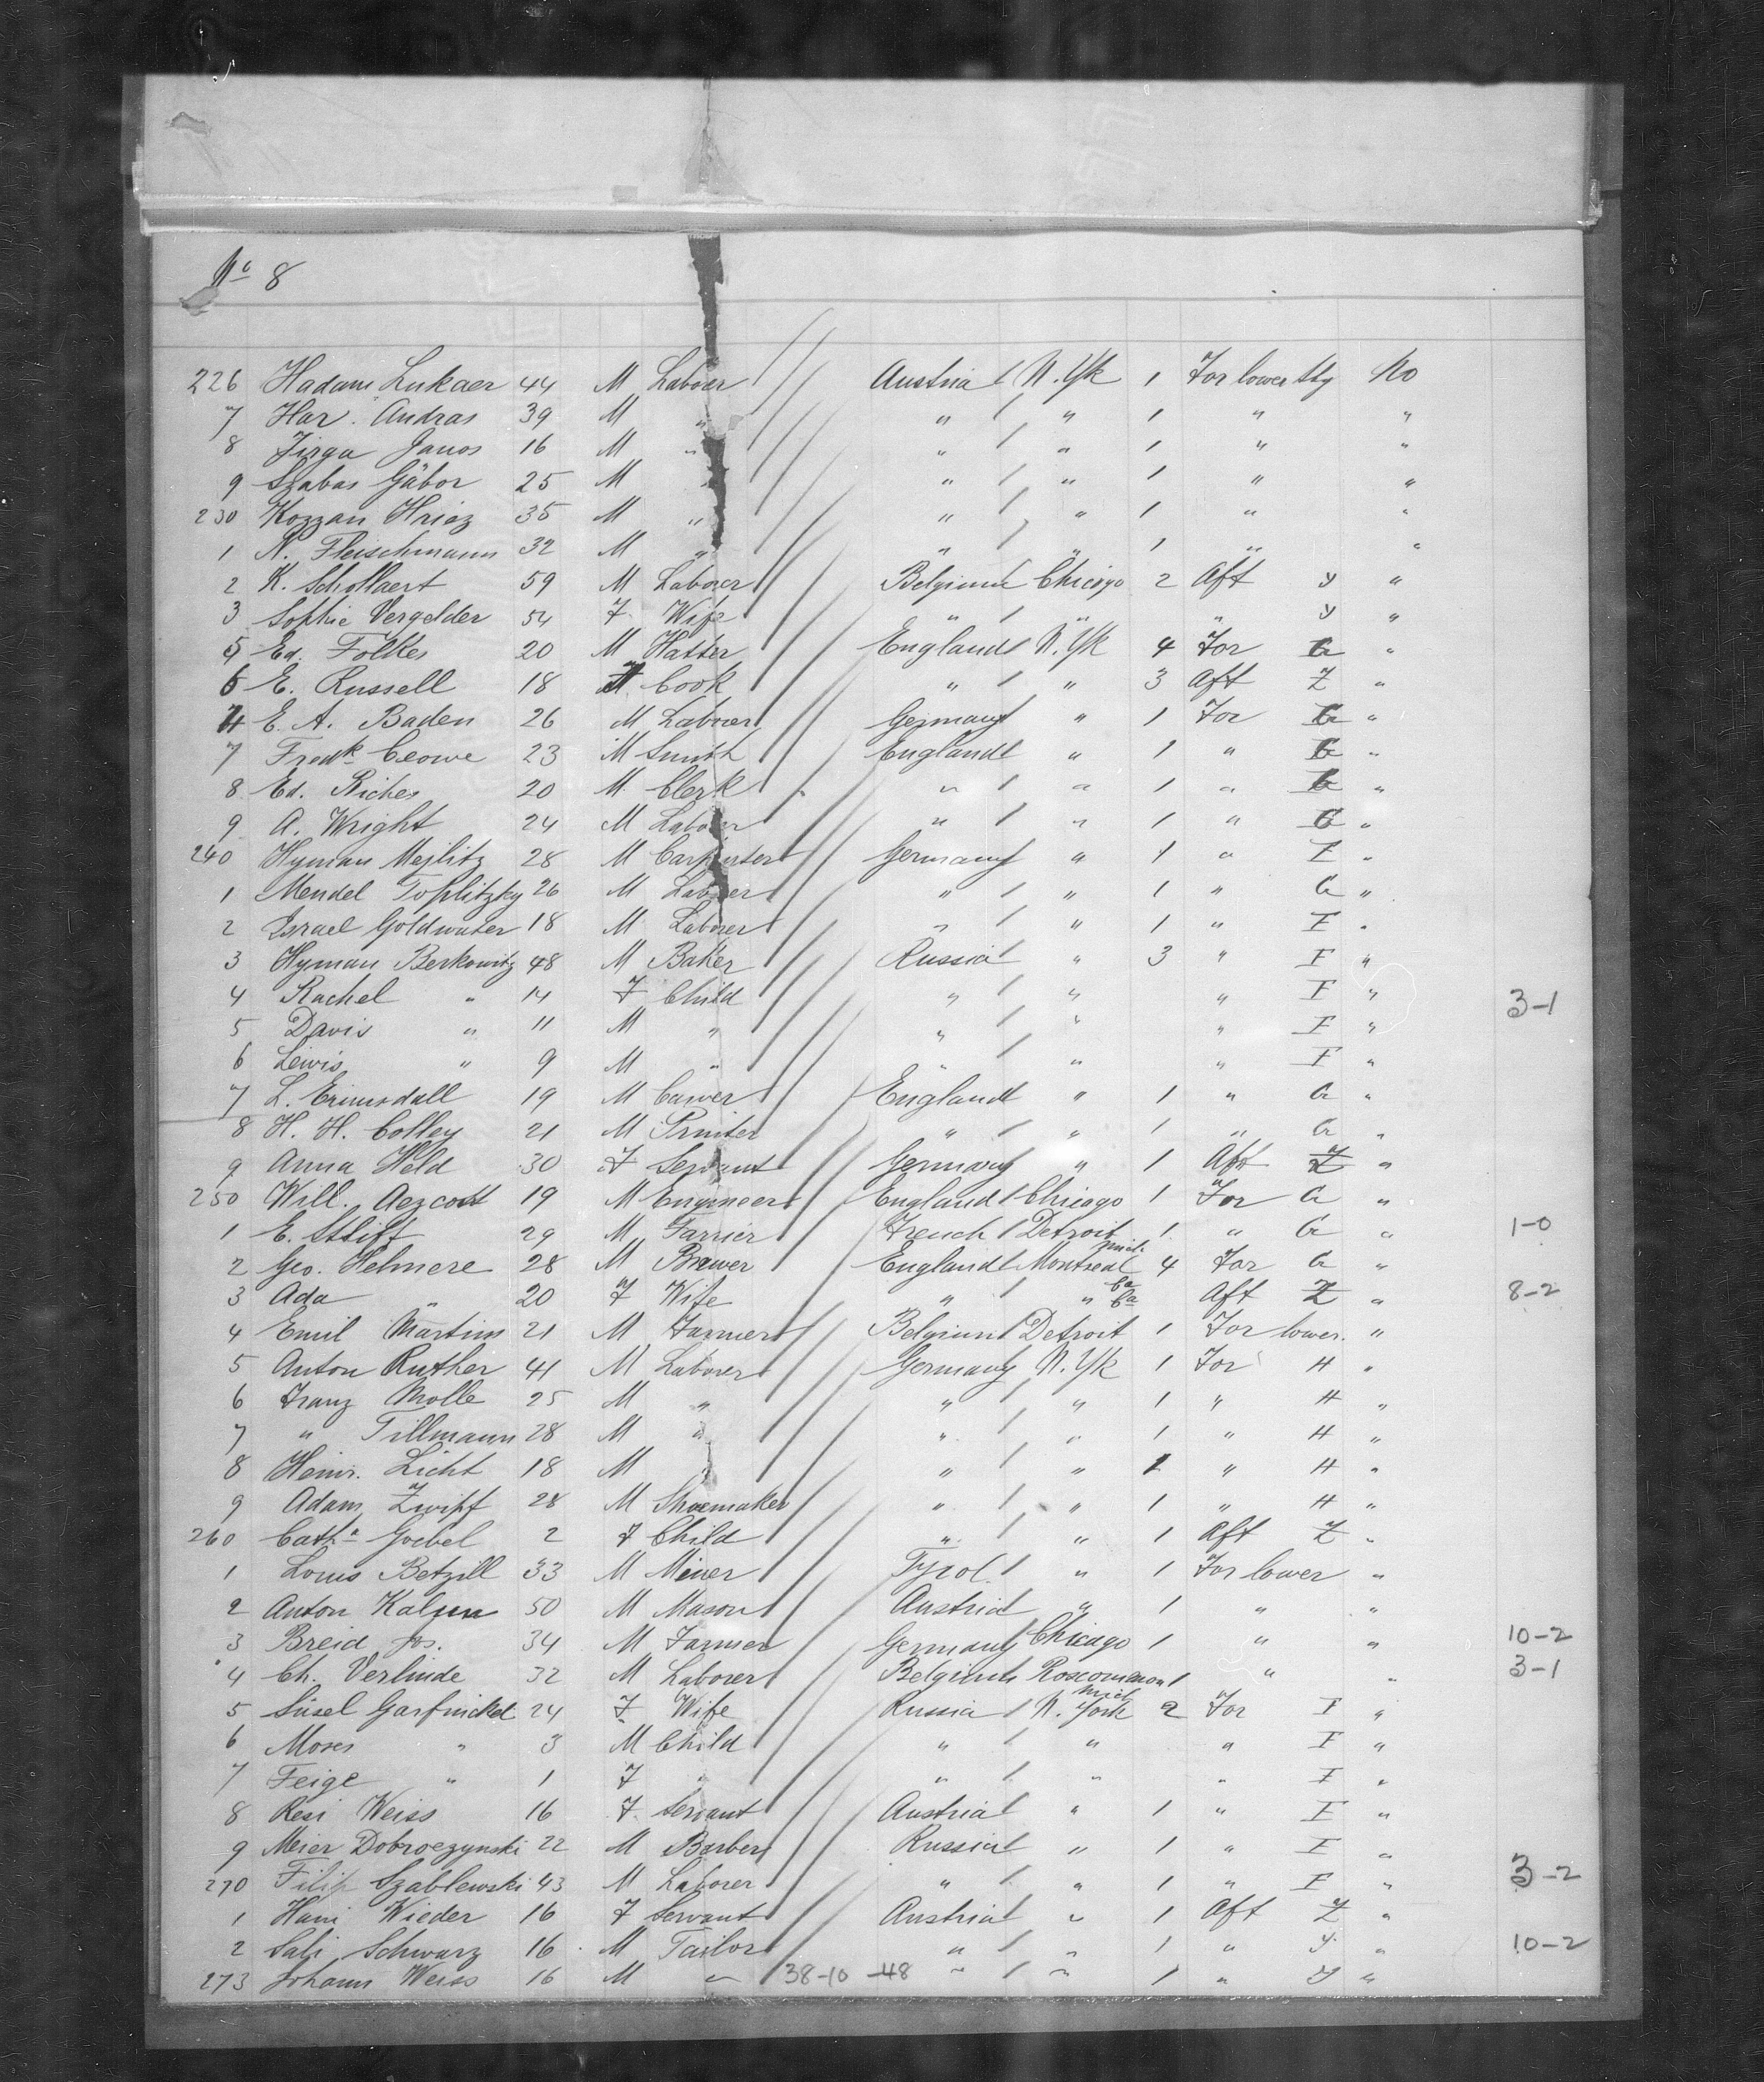 No 8
226 Hadam Lukaer 44 M Laborer Austria N. Yk 1 For lower Stg No
7 Har. Andras 39 M " " " 1 " "
8 Jirga Janos 16 M " " " 1 " "
9 Szabas Gábor 25 M " " " 1 " "
230 Kozzan Hriaz 35 M " " " 1 " "
1 N. Fleischmann 32 M " " " 1 " "
2 K. Schollaert 59 M Laborer Belgium Chicago 2 Aft y "
3 Sophie Vergelder 54 F Wife " " " y "
5 Ed. Folkes 20 M Hatter England N. Yk 4 For G "
6 E. Russell 18 M Cook " " 3 Aft Z "
4 E. A. Baden 26 M Laborer Germany " 1 For G "
7 Fredk Crowe 23 M Smith England " 1 " G "
8 Ed. Riches 20 M Clerk " " 1 " G "
9 A. Wright 24 M Laborer " " 1 " G "
240 Hyman Mejlitz 28 M Carpenter Germany " 1 " I "
1 Mendel Toplitzky 26 M Laborer " " 1 " G "
2 Israel Goldwater 18 M Laborer " " 1 " I "
3 Hyman Berkowitz 48 M Baker Russia " 3 " I "
4 Rachel " 14 F Child " " " I " 3-1
5 Davis " 11 M " " " " I "
6 Lewis " 9 M " " " " I "
7 L. Erinsdall 19 M Carver England " 1 " G "
8 H. H. Colley 21 M Printer " " 1 " G "
9 Anna Held 30 F Servant Germany " 1 Aft Z "
250 Will. Aezcott 19 M Engineer England Chicago 1 For G "
1 E. Stlift 29 M Farrier French Detroit Mich. 1 " G " 1-0
2 Geo. Helmere 28 M Brewer England Montreal Ca 4 For G "
3 Ada " 20 F Wife " " Ca Aft Z " 8-2
4 Emil Martins 21 M Farmer Belgium Detroit 1 For lower "
5 Anton Ruther 41 M Laborer Germany N. Yk 1 For H "
6 Franz Molle 25 M " " " 1 " H "
7 " Tillmann 28 M " " " 1 " H "
8 Heinr. Licht 18 M " " " 1 " H "
9 Adam Zwipf 28 M Shoemaker " " 1 " H "
260 Catha Goebel 2 F Child " " 1 Aft Z "
1 Louis Betzill 33 M Miner Tyrol " 1 For lower "
2 Anton Kalun 50 M Mason Austria " 1 " "
3 Breid Jos. 34 M Farmer Germany Chicago 1 " " 10-2
4 Ch. Verlinde 32 M Laborer Belgium Roscommon Mich 1 " " 3-1
5 Süsel Garfinckel 24 F Wife Russia N. York 2 For I "
6 Moses " 3 M Child " " " I "
7 Feige " 1 F " " " " I "
8 Resi Weiss 16 F Servant Austria " 1 " I "
9 Meier Dobroczynski 22 M Barber Russia " 1 " I "
270 Filip Szablewski 43 M Laborer " " 1 " I " 3-2
1 Hani Wieder 16 F Servant Austria " 1 Aft Z "
2 Sali Schwarz 16 M Tailor " " 1 " y " 10-2
273 Johann Weiss 16 M " 38-10-48 " " 1 " y "